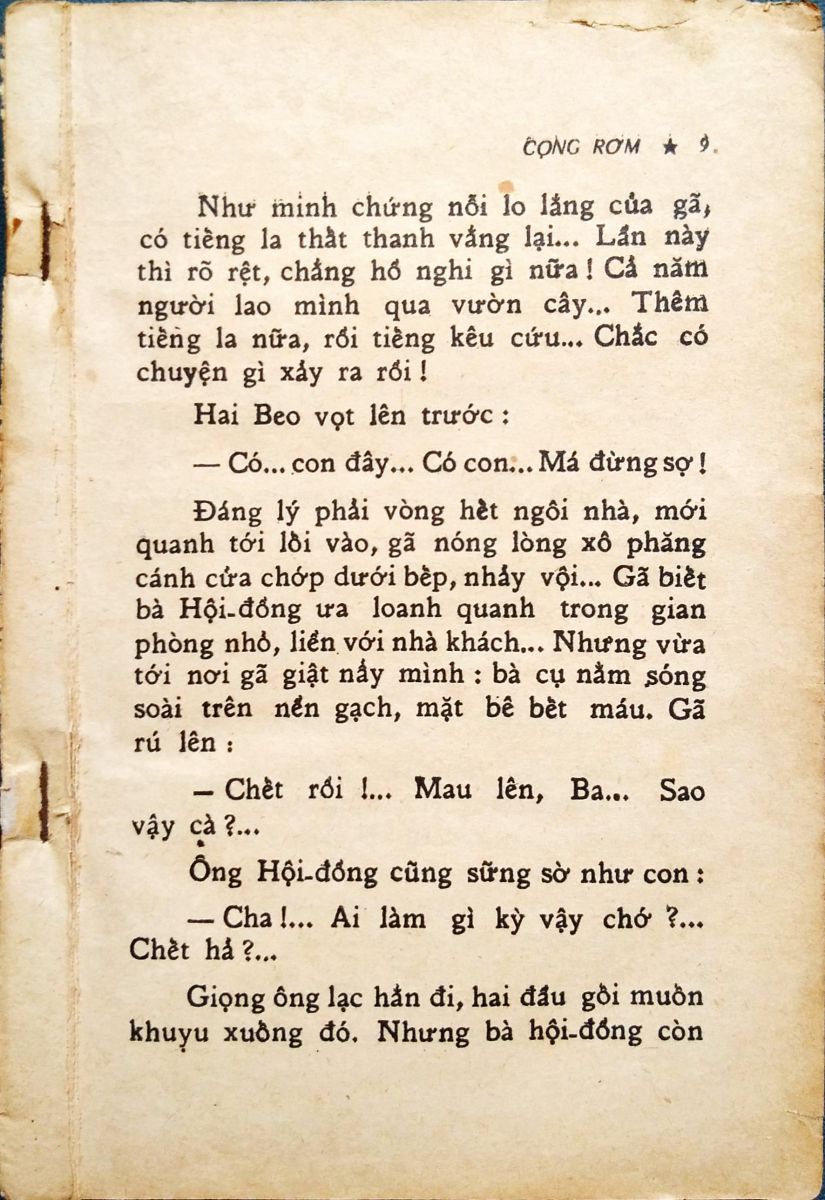 CỌNG RƠM ★ 9
Như minh chứng nỗi lo lắng của gã,
có tiếng la thất thanh vẳng lại... Lần này
thì rõ rệt, chẳng hồ nghi gì nữa ! Cả năm
người lao mình qua vườn cây... Thêm
tiếng la nữa, rồi tiếng kêu cứu... Chắc có
chuyện gì xảy ra rồi !
Hai Beo vọt lên trước :
— Có... con đây... Có con... Má đừng sợ !
Đáng lý phải vòng hết ngôi nhà, mới
quanh tới lối vào, gã nóng lòng xô phăng
cánh cửa chớp dưới bếp, nhảy vội... Gã biết
bà Hội-đồng ưa loanh quanh trong gian
phòng nhỏ, liền với nhà khách... Nhưng vừa
tới nơi gã giật nẩy mình : bà cụ nằm sóng
soài trên nền gạch, mặt bê bết máu. Gã
rú lên :
— Chết rồi !... Mau lên, Ba... Sao
vậy cà ?...
Ông Hội-đồng cũng sững sờ như con :
— Cha !... Ai làm gì kỳ vậy chớ ?...
Chết hả ?...
Giọng ông lạc hẳn đi, hai đầu gối muốn
khuỵu xuống đó. Nhưng bà hội-đồng còn